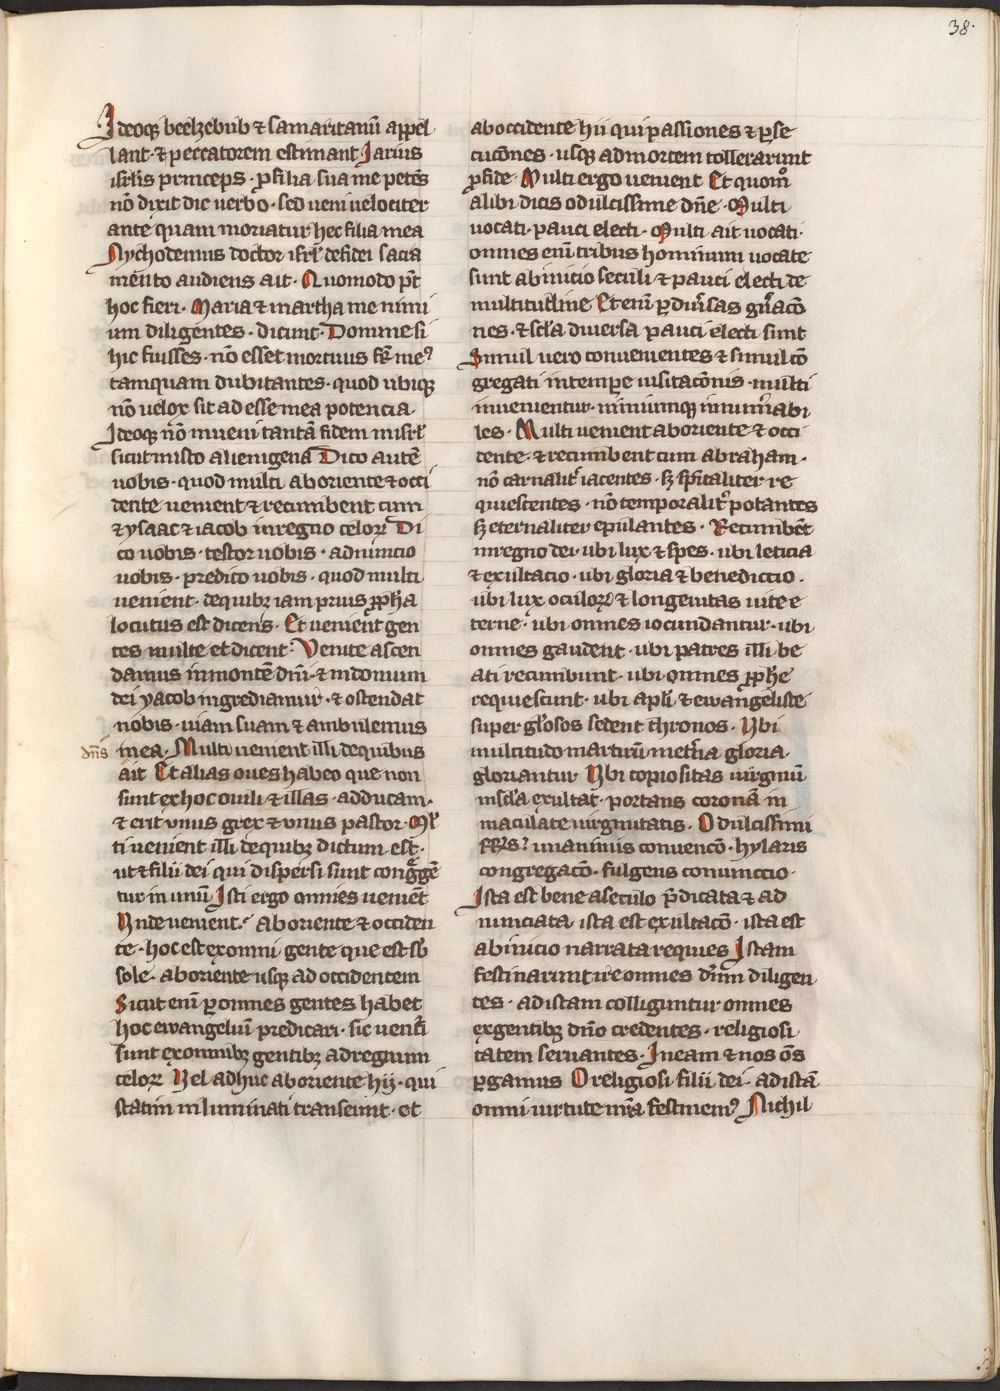 38.
Ideoqꝫ beelzebub ⁊ samaritanū appel
lant · ⁊ peccatorem estimant Jarius
isrl̄is princeps · ꝓ filia sua me petēs
nō dixit dic verbo · sed veni velociter
ante quam moriatur hec filia mea
Nychodemus doctor isrl̄ de fidei sacra
mēto audiens ait · Quomodo pt̄
hoc fieri · Maria ⁊ martha me nimi
um diligentes · dicunt · Domine si
hic fuisses · nō esset mortuus fr̄ meꝰ
tamquam dubitantes · quod ubiqꝫ
nō uelox sit ad esse mea potencia ·
Ideoqꝫ nō inueni tantā fidem in isrl̄
sicut in isto alienigena Dico autē
uobis · quod multi ab oriente ⁊ occi
dente uenient ⁊ recumbent cum
⁊ ysaac ⁊ iacob in regno celoꝝ Di
co uobis · testor uobis · adnuncio
uobis · predico uobis · quod multi
uenient · de quibꝫ iam prius ꝓph̄a
locutus est dicens · Et uenient gen
tes multe et dicent · Venite ascen
damus in montē dn̄i · ⁊ in domum
dei yacob ingrediamur · ⁊ ostendat
nobis · uiam suam ⁊ ambulemus
dn̄s in ea · Multi uenient illi de quibus
ait Et alias oues habeo que non
sunt ex hoc ouili ⁊ illas · adducam ·
⁊ erit vnus grex ⁊ vnus pastor · Ml̄
ti uenient illi de quibꝫ dictum est ·
ut ⁊ filii dei qui dispersi sunt congᷓgē
tur in unū Isti ergo omnes ueniēt
Vnde uenient · ab oriente ⁊ occiden
te · hoc est ex omni gente que est sb̄
sole · ab oriente usqꝫ ad occidentem
Sicut enī ꝑ omnes gentes habet
hoc ewangeliū predicari · sic uentᷓi
sunt ex omnibꝫ gentibꝫ ad regnum
celoꝝ Vel adhuc ab oriente hij · qui
statim illuminati transeunt · et
ab occidente hii qui passiones ⁊ ꝑse
cucōnes · usqꝫ ad mortem tollerarunt
ꝓ fide · Multi ergo uenient Et quomͦ
alibi dicis o dulcissime dn̄e · Multi
uocati · pauci electi · Multi ait uocati ·
omnes enī tribus hominum uocate
sunt ab inicio seculi ⁊ pauci electi de
multitudine Et enī ꝑ diu̾sas gn̄acō
nes · ⁊ scl̄a diuersa pauci electi sunt
Simul uero conuenientes ⁊ simul cō
gregati in tempe uisitacōnis · multi
inuenientur · nimiumqꝫ innum̾abi
les · Multi uenient ab oriente ⁊ occi
dente · ⁊ recumbent cum abraham ·
nō carnalit̾ iacentes · sꝫ sp̄italiter re
quiescentes · nō temporalit̾ potantes
sꝫ eternaliter epulantes · Recumbēt
in regno dei · ubi lux ⁊ spes · ubi leticia
⁊ exultacio · ubi gloria ⁊ benedictio ·
ubi lux oculoꝝ ⁊ longeuitas uite e
terne · ubi omnes iocundantur · ubi
omnes gaudent · ubi patres illi be
ati recumbunt · ubi omnes ꝓph̄e
requiescunt · ubi apl̄i ⁊ ewangeliste
super gl̄osos sedent thronos · Vbi
multitudo martirū in et̾na gloria
gloriantur Vbi copiositas uirginū
in scl̄a exultat · portans coronā in
maculate uirginitatis · O dulcissimi
unanimis conuencō · hylaris
congregacō · fulgens coniunctio ·
Ista est bene a seculo p̄dicata ⁊ ad
nunciata · ista est exultacō · ista est
ab inicio narrata requies Istam
festinarunt ire omnes dn̄m diligen
tes · ad istam colliguntur omnes
ex gentibꝫ dn̄o credentes · religiosi
tatem seruantes · In eam ⁊ nos ōs
ꝑgamus O religiosi filii dei · ad istā
omni uirtute nr̄a festinemꝰ Nichil